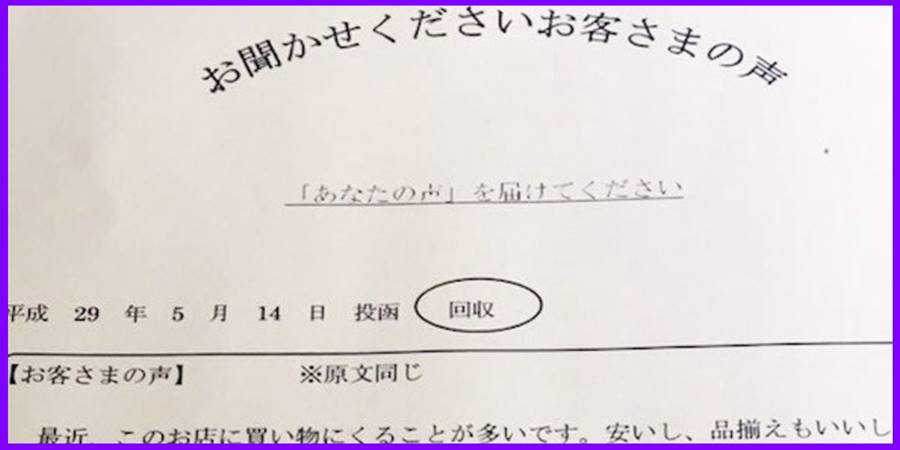 お聞かせくださいお客さまの声
「あなたの声」を届けてください
平成 29 年 5 月 14 日 投函 回収
【お客さまの声】 ※原文同じ
最近、このお店に買い物にくることが多いです。安いし、品揃えもいいし